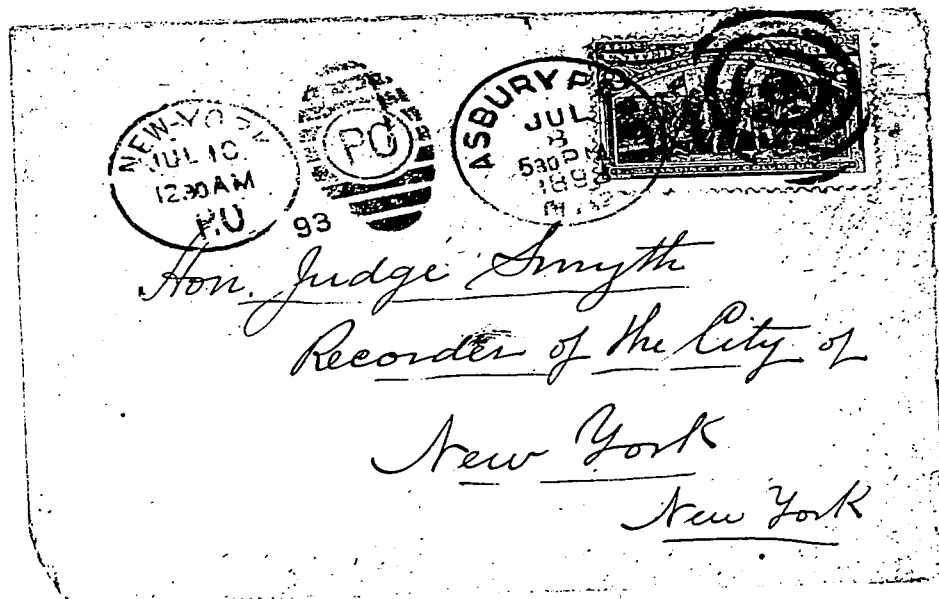 NEW-YORK
JUL 10
12.30AM
P.O
93
PO
ASBURY P
JUL
8
530 PM
1893
Hon. Judge Smyth
Recorder of the City of
New York
New York